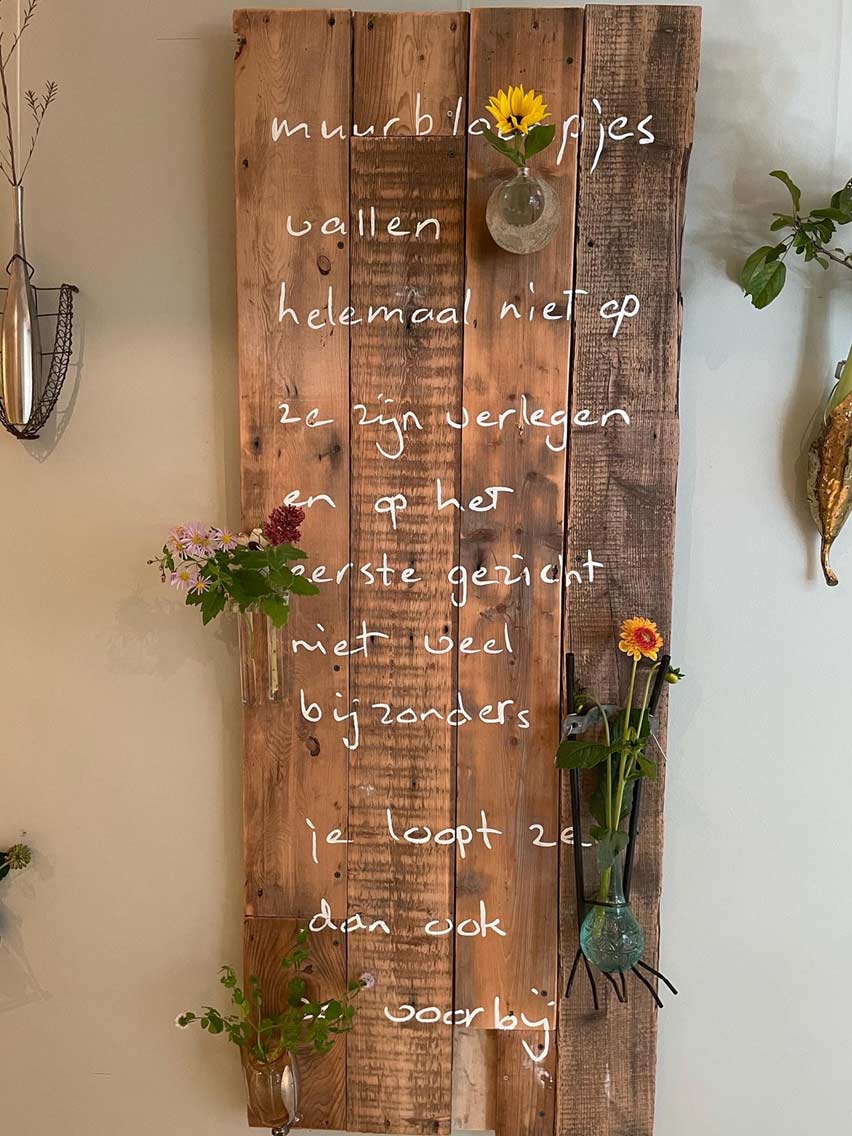 muurbloempjes
vallen
helemaal niet op
ze zijn verlegen
en op het
eerste gezicht
niet veel
bijzonders
je loopt ze
dan ook
voorbij